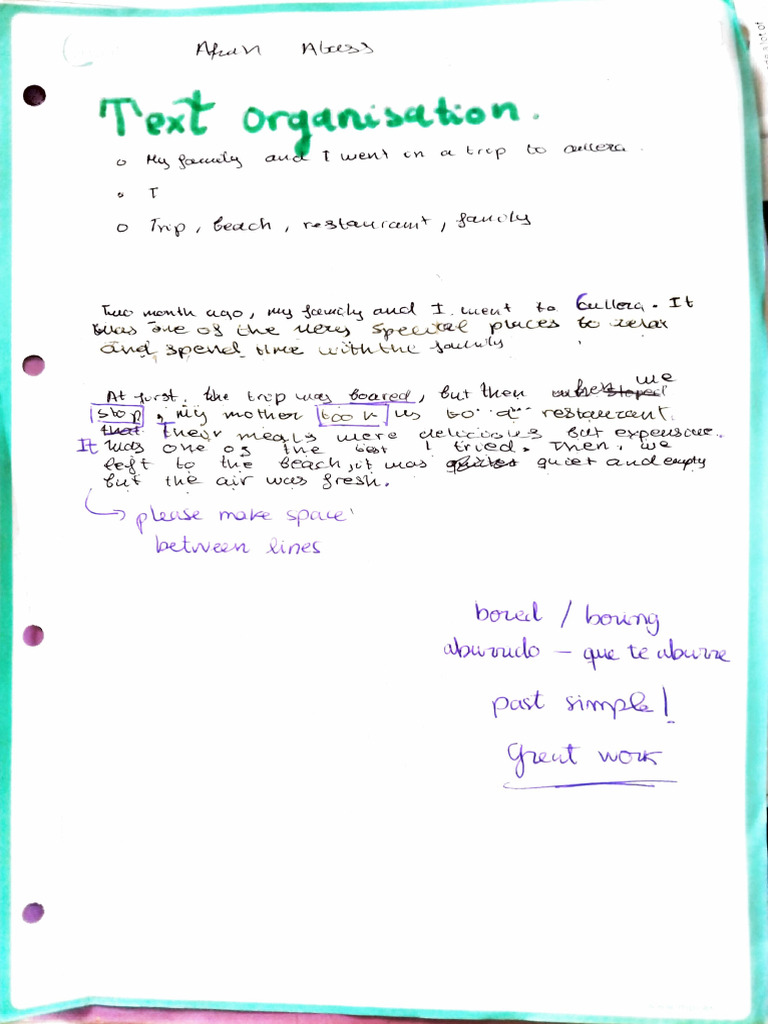 Text organisation.
o My family and I went in a trip to cullera.
o I
o Trip, beach, restaurant, family
Two month ago, my family and I went to Cullera. It
was one of the very special places to relax
and spend time with the family
At first, the trip was boared, but then when we
stop, my mother took us to a restaurant.
that Their meals were delicious but expensive.
It was one of the best I tried. Then, we
left to the beach, it was quiet and empty
but the air was fresh.
please make space
between lines
bored / boring
aburrido – que te aburre
past simple!
Great work